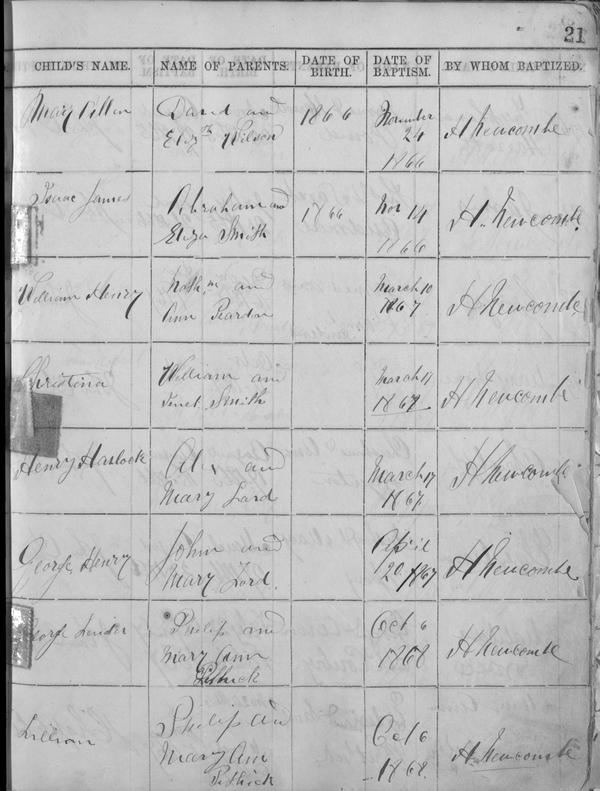 21
CHILD'S NAME. NAME OF PARENTS. DATE OF BIRTH. DATE OF BAPTISM. BY WHOM BAPTIZED.
David and 1866 November H Newcombe
Eliz.th Wilson 24
1866
Isaac James Abraham and 1866 Nov 14 H. Newcombe
Eliza Smith 1866
William Henry and March 10 H Newcombe
Ann Peardon 1867
Christina William and March 17 H Newcombe
Smith 1867
Henry Alex and March 17 H Newcombe
Mary 1867
George Henry John and April H Newcombe
Mary Lord. 20 1867
George Philip and Oct 6 H Newcombe
Mary Ann 1868
Lillian Philip and Oct 6 H. Newcombe
Mary Ann 1868